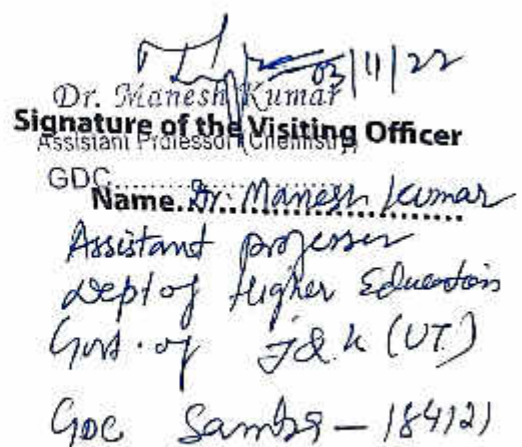 03/11/22
Dr. Manesh Kumar
Signature of the Visiting Officer
Assistant Professor (Chemistry)
GDC..................
Name. Dr. Manesh Kumar
Assistant professer
Dept of Higher Education
Govt. of J&K (UT)
GDC Samba - 184121